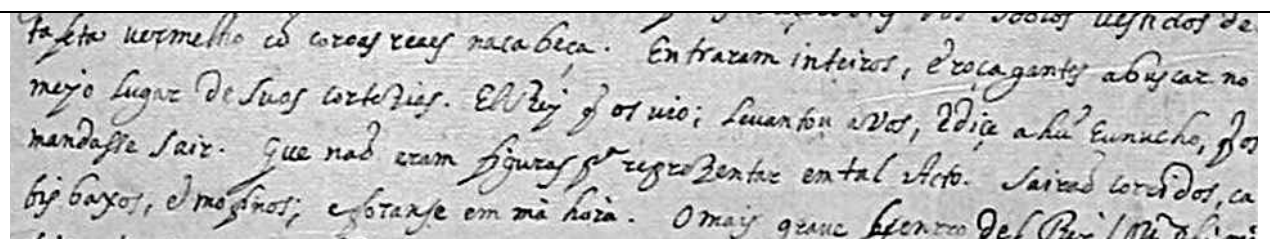 dos vestidos de
tafeta vermelho cõ coroas reaes na cabeça. Entraram inteiros, e roçagantes a buscar no
meyo lugar de suas cortezias. ElRey q̃ os vio; levantou a vos, e diçe a hũ Eunucho, q̃ os
mandasse sair. Que naõ eram figuras pª reprezentar em tal Acto. Sairaõ corridos, ca
bis baxos, e mofinos; e foranse em mà hora. O mais grave del Rei